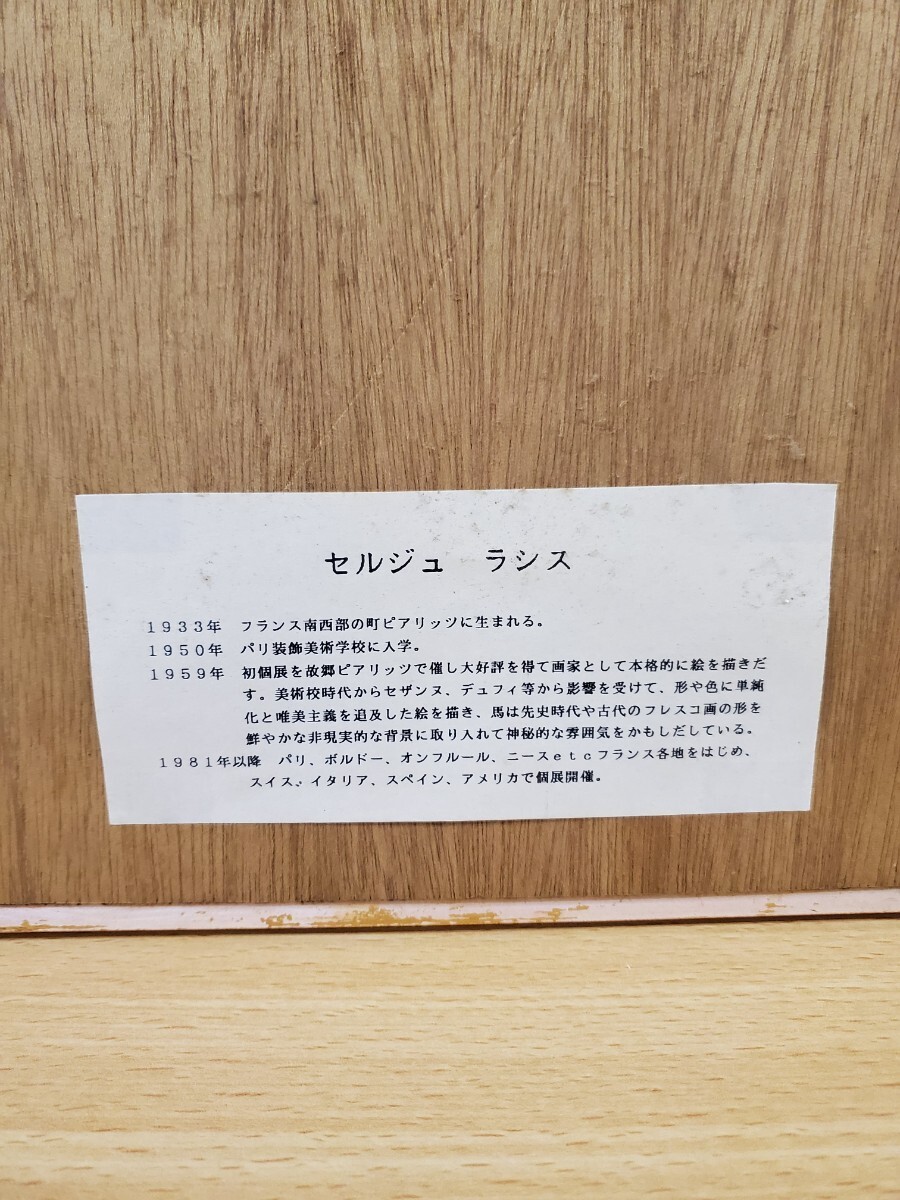 セルジュ　ラシス
１９３３年　フランス南西部の町ピアリッツに生まれる。
１９５０年　パリ装飾美術学校に入学。
１９５９年　初個展を故郷ピアリッツで催し大好評を得て画家として本格的に絵を描きだ
す。美術校時代からセザンヌ、デュフィ等から影響を受けて、形や色に単純
化と唯美主義を追及した絵を描き、馬は先史時代や古代のフレスコ画の形を
鮮やかな非現実的な背景に取り入れて神秘的な雰囲気をかもしだしている。
１９８１年以降　パリ、ボルドー、オンフルール、ニースｅｔｃフランス各地をはじめ、
スイス、イタリア、スペイン、アメリカで個展開催。